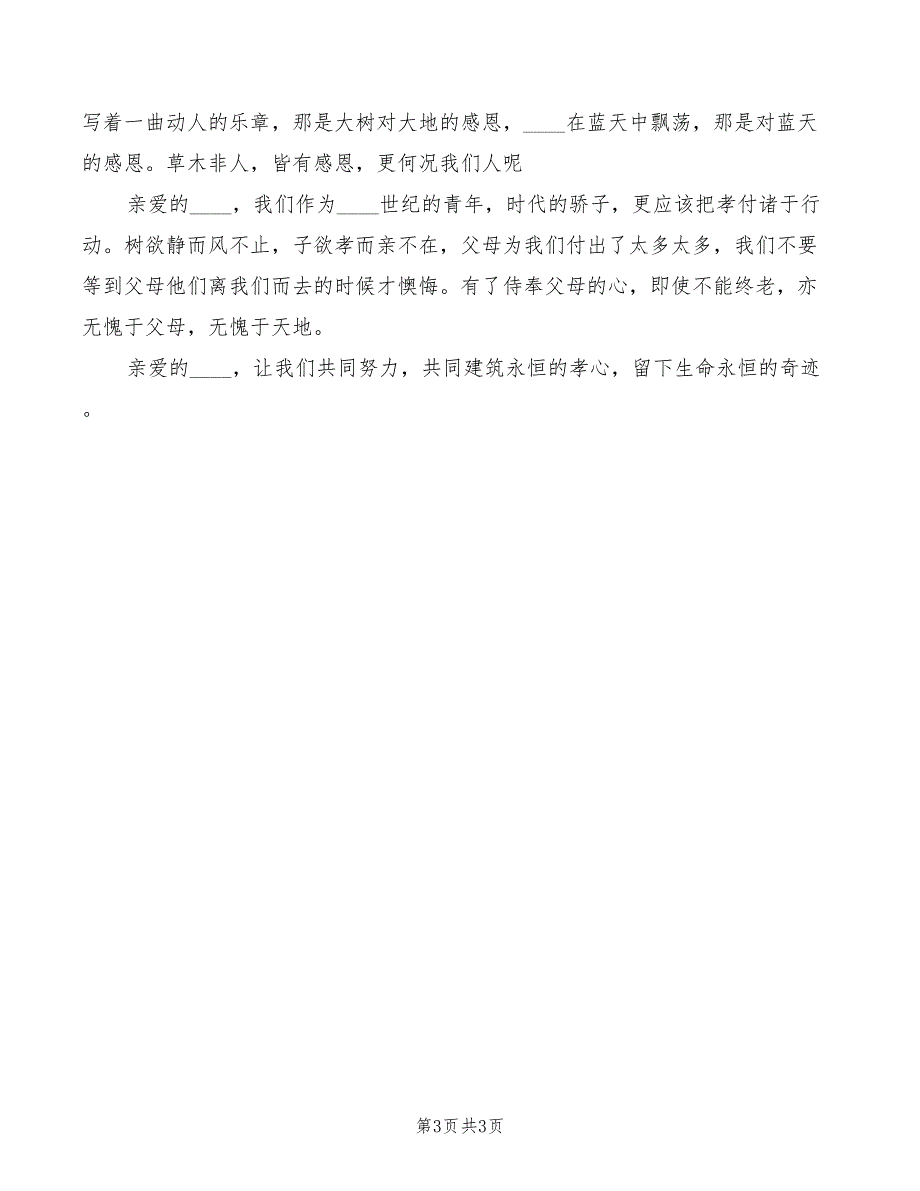 写着一曲动人的乐章，那是大树对大地的感恩，____在蓝天中飘荡，那是对蓝天
的感恩。草木非人，皆有感恩，更何况我们人呢
亲爱的____，我们作为____世纪的青年，时代的骄子，更应该把孝付诸于行
动。树欲静而风不止，子欲孝而亲不在，父母为我们付出了太多太多，我们不要
等到父母他们离我们而去的时候才懊悔。有了侍奉父母的心，即使不能终老，亦
无愧于父母，无愧于天地。
亲爱的____，让我们共同努力，共同建筑永恒的孝心，留下生命永恒的奇迹
。
第3页 共3页